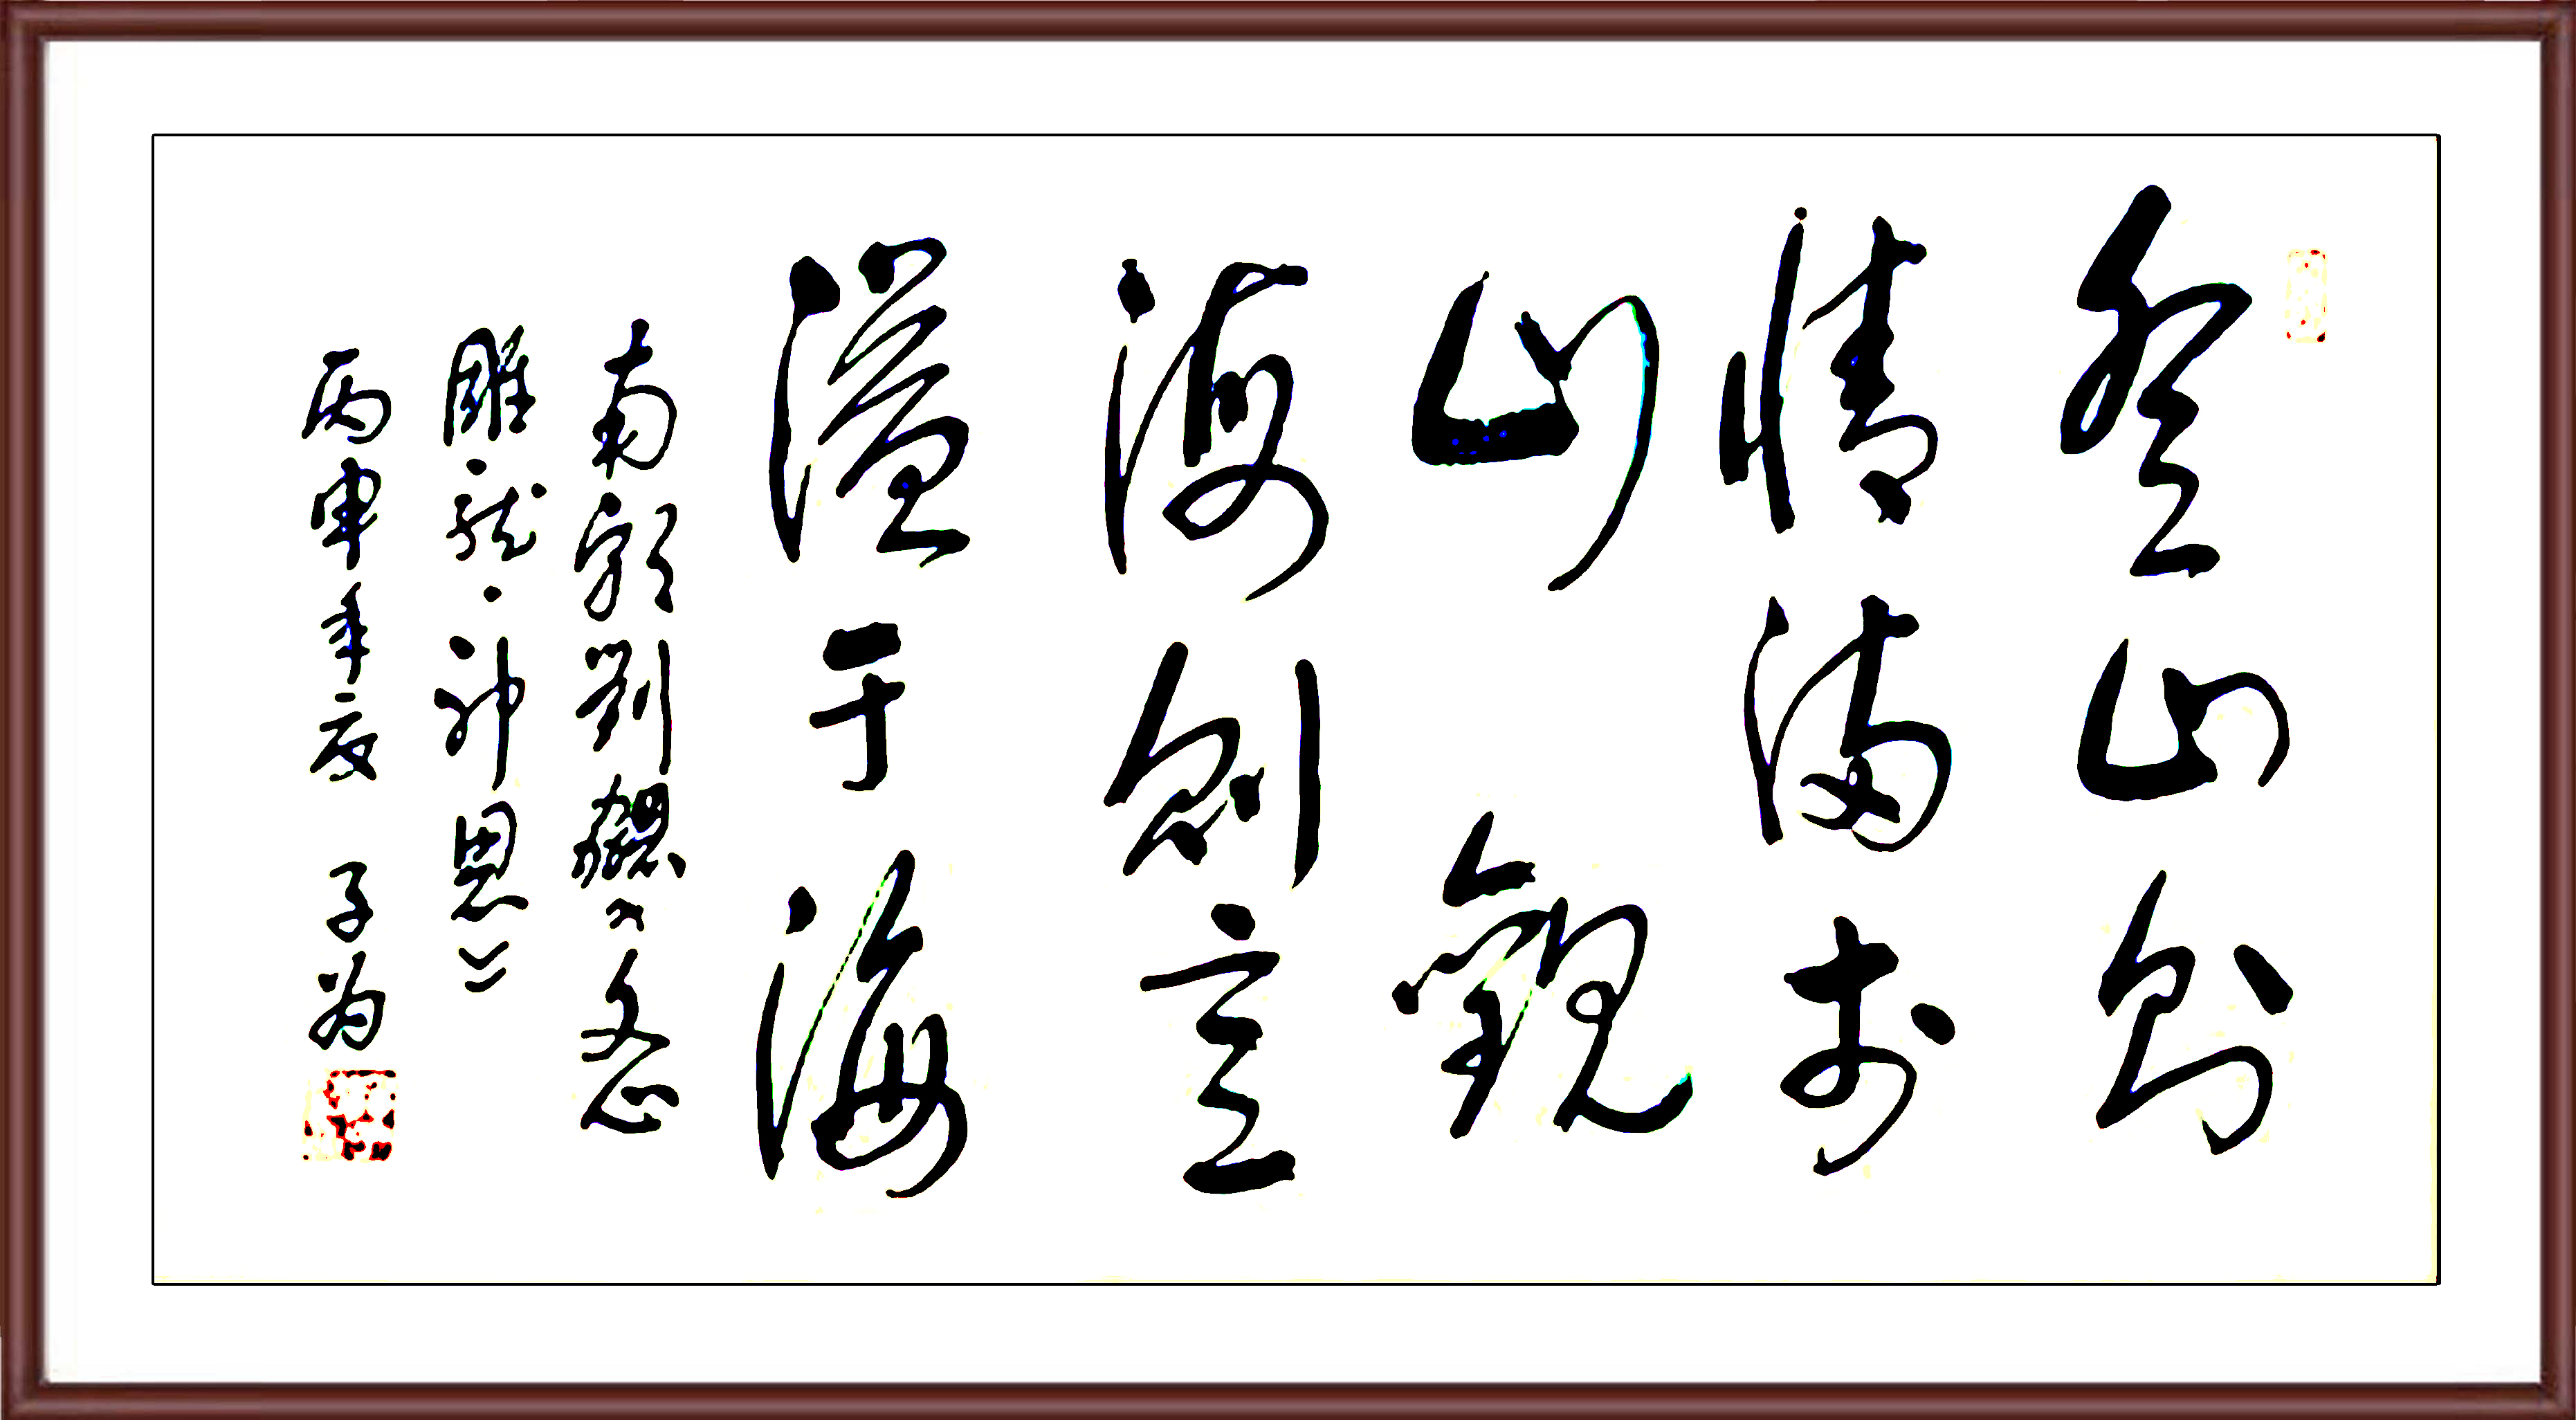 登山則
情滿於
山觀
海則意
溢于海
南朝劉勰《文心
雕龍·神思》
丙申年夏 子为